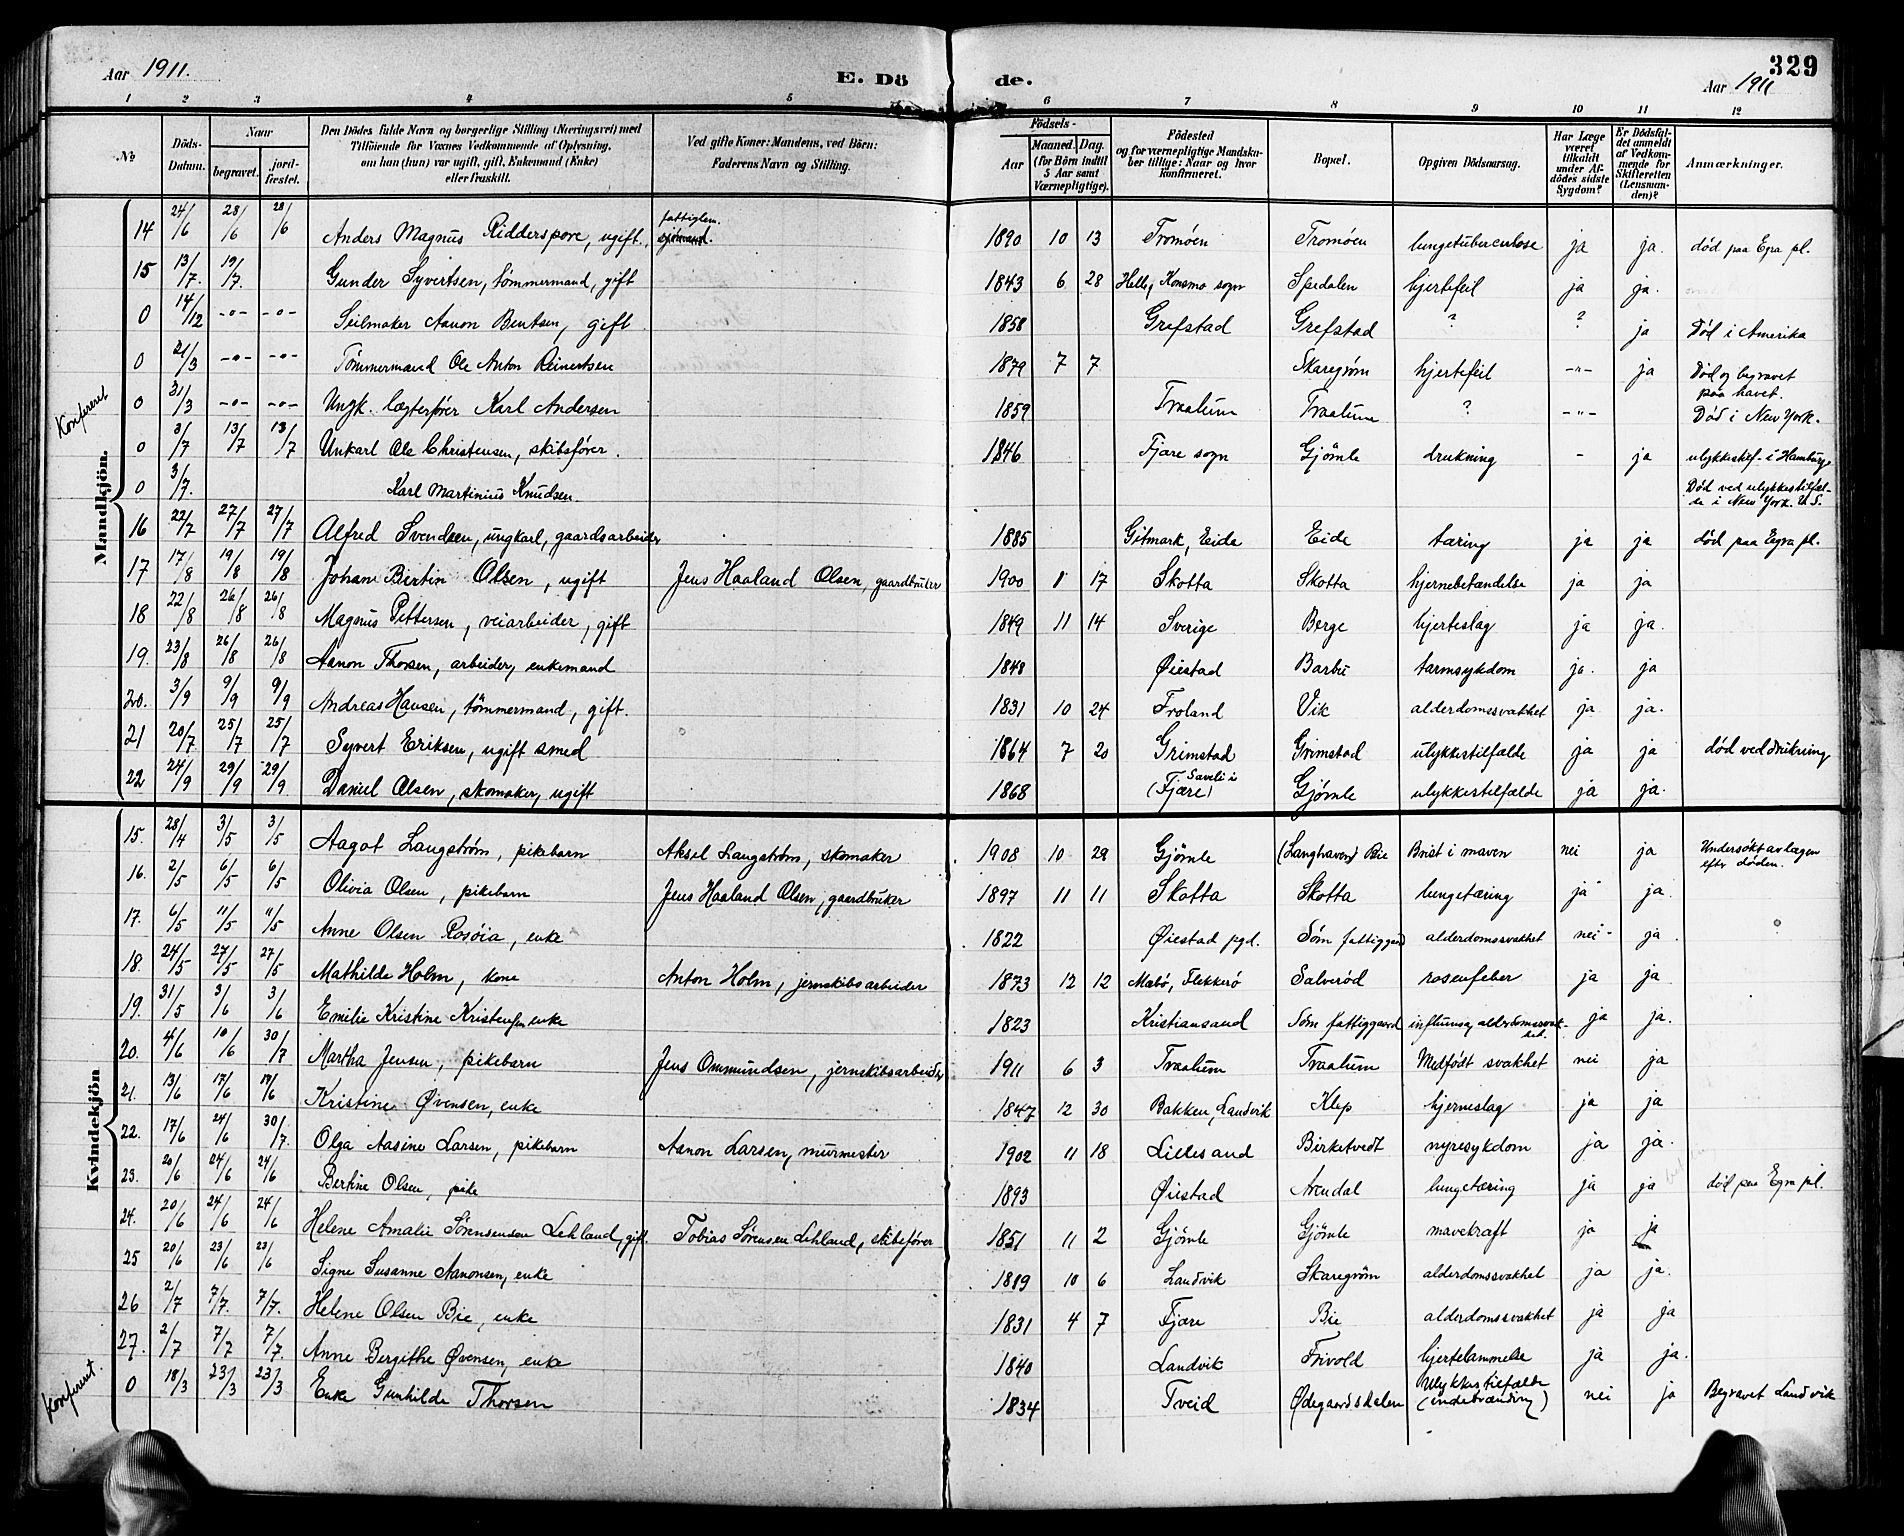 Aar 1911.
E. Dö
de.
329
Aar 1911
1 2 3 4 5 6 7 8 9 10 11 12
No
Döds-Datum.
Naar
begravet.
jord-fæstet.
Den Dödes fulde Navn og borgerlige Stilling (Næringsvei) med
Tilföiende for Voxnes Vedkommende af Oplysning,
om han (hun) var ugift, gift, Enkemand (Enke)
eller fraskilt.
Ved gifte Koner: Mandens, ved Börn:
Faderens Navn og Stilling.
Födsels-
Aar
Maaned. Dag.
(for Börn indtil
5 Aar samt
Værnepligtige).
Födested
og for værnepligtige Mandska-
ber tillige: Naar og hvor
konfirmeret.
Bopæl.
Opgiven Dödsaarsag.
Har Læge
været
tilkaldt
under Af-
dödes sidste
Sygdom?
Er Dödsfal-
det anmeldt
af Vedkom-
mende for
Skifteretten
(Lensman-
den)?
Anmærkninger.
Mandkjön.
Konfereret
14 24/6 28/6 28/6 Anders Magnus Ridderspore, ugift. fattiglem. sjömand. 1890 10 13 Tromöen Tromöen lungetuberculose ja ja. död paa Egra pl.
15 13/7. 19/7. Gunder Syvertsen, tömmermand, gift 1843 6 28 Helle, Konsmo sogn Spedalen hjertefeil ja ja.
0 14/12 -o- -o- Seilmaker Aanon Bentsen, gift 1858 Grefstad Grefstad ? ? ja Död i Amerika
0 21/3 -o- -o- Tømmermand Ole Anton Reinertsen 1879 7 7 Skaregrøm hjertefeil -"- ja Död og begravet
paa havet.
0 31/3 -o- -o- Ungk. lægterfører Karl Andersen 1859 Traalum Traalum ? -"- Död i New York.
0 3/7 13/7 13/7 Unkarl Ole Christensen, skibsfører. 1846 Fjære sogn Gjömle drukning - ja ulykkestilf. i Hamburg.
0 3/7. Karl Martinius Knudsen. Död ved ulykkestilfæl-
de i New York. U.S.
16 22/7 27/7 27/7 Alfred Svendsen, ungkarl, gaardsarbeider 1885 Gitmark, Eide Eide tæring ja ja död paa Egra pl.
17 17/8 19/8 19/8 Johan Bertin Olsen, ugift Jens Haaland Olsen, gaardbruker 1900 1 17 Skotta Skotta hjernebetændelse ja ja
18 22/8 26/8 26/8 Magnus Pettersen, veiarbeider, gift 1849 11 14 Sverige Berge hjerteslag ja ja.
19. 23/8 26/8 26/8 Aanon Thorsen, arbeider, enkemand 1848 Øiestad Barbu tarmsykdom ja. ja
20. 3/9 9/9 9/9 Andreas Hansen, tömmermand, gift. 1831 10 24 Froland Vik alderdomssvakhet ja ja.
21 20/7 25/7 25/7 Syvert Eriksen, ugift smed 1864 7 20 Grimstad Grimstad ulykkestilfælde ja ja död ved drukning
22 24/9 29/9 29/9 Daniel Olsen, skomaker, ugift 1868 Saveli i (Fjære) Gjömle ulykkestilfælde ja ja.
Kvindekjön
Konfereret.
15. 28/4 3/5 3/5 Aagot Langström, pikebarn Aksel Langström, skomaker 1908 10 29 Gjömle (Langhaven) Bie Brist i maven nei ja Undersökt av lægen
efter döden.
16. 2/5 6/5 6/5 Olivia Olsen, pikebarn Jens Haaland Olsen, gaardbruker 1897 11 11 Skotta Skotta lungetæring ja ja.
17. 6/5 11/5 11/5 Anne Olsen Rosöia, enke 1822 Øiestad pgd. Söm fattiggaard alderdomssvakhet nei ja
18. 24/5 27/5 27/5 Mathilde Holm, kone Anton Holm, jernskibsarbeider 1873 12 12 Mæbö, Flekkerö Salveröd rosenfeber ja ja
19. 31/5 3/6 3/6 Emilie Kristine Kristensen enke 1823 Kristiansand Söm fattiggaard influensa, alderdomssvak-
het. ja ja.
20. 4/6 10/6 30/7 Martha Jensen, pikebarn Jens Ommundsen, jernskibsarbeider 1911 6 3 Traalum Traalum Medfödt svakhet nei ja
21. 13/6 17/6 17/6 Kristine Øvensen, enke 1847 12 30 Bakken, Landvik Klep hjerneslag ja ja
22. 17/6 24/6 30/7. Olga Aasine Larsen, pikebarn Aanon Larsen, murmester 1902 11 18 Lillesand Birketvedt nyresykdom ja ja.
23. 20/6 24/6 24/6 Bertine Olsen, pike 1893 Øiestad Arendal lungetæring ja ja död paa Egra pl.
24. 20/6 24/6 24/6 Helene Amalie Sørensen Lehland, gift. Tobias Sørensen Lehland, skibsfører 1851 11 2 Gjömle Gjömle mavekræft ja ja
25 20/6 23/6 23/6 Signe Susanne Aanonsen, enke 1819 10 6 Landvik Skaregrøm alderdomssvakhet ja ja.
26 2/7 7/7. 7/7. Helene Olsen Bie, enke 1831 4 7 Fjære Bie alderdomssvakhet ja ja
27. 2/7 7/7 7/7. Anne Bergithe Øvensen, enke 1840 Landvik Frivold hjertelammelse ja ja.
0 18/3 23/3 23/3 Enke Gunhilde Thorsen 1834 Tveid Ødegaardsdalen Ulykkestilfælde
(indebrænding) nei ja Begravet Landvik